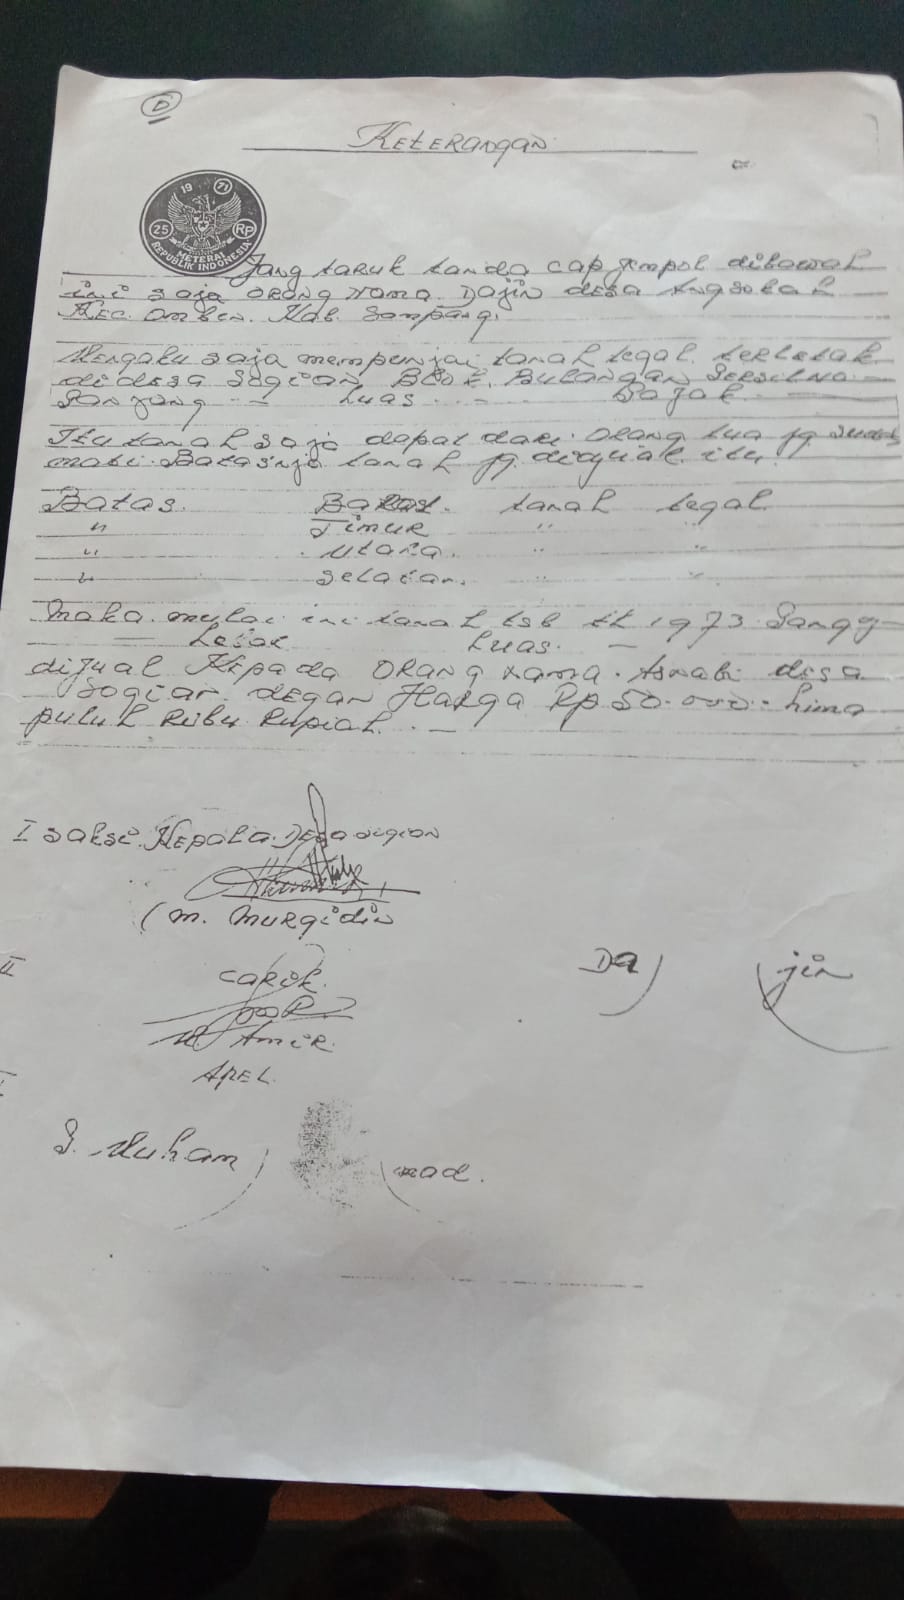 D
KETERANGAN
19 71
25 RP
METERAI
REPUBLIK INDONESIA
Jang taruk tanda cap jempol dibawah
ini saja orang nama Dajin desa Angsokah
Kec. Omben. Kab. Sampang.
Mengaku saja mempunjai tanah tegal. terletak
didesa Sogian, Blok. Bulangan Persil No —
Panjang — Luas. — Pajak —
Itu tanah saja dapat dari orang tua jg sudah
mati. Batasnja tanah jg dijual itu
Batas. Barat. tanah tegal.
" Timur " "
" utara. " "
" selatan. " "
Maka mulai ini tanah tsb th 1973
— Luas. —
dijual Kepada orang nama. Asnabi desa
Sogian degan Harga Rp 50.000.- Lima
puluh Ribu Rupiah. —
I saksi. Kepala. Desa sogian
(M. Murgidin
II
carik.
M Amir.
APEL.
Da jin
S. Muham mad.